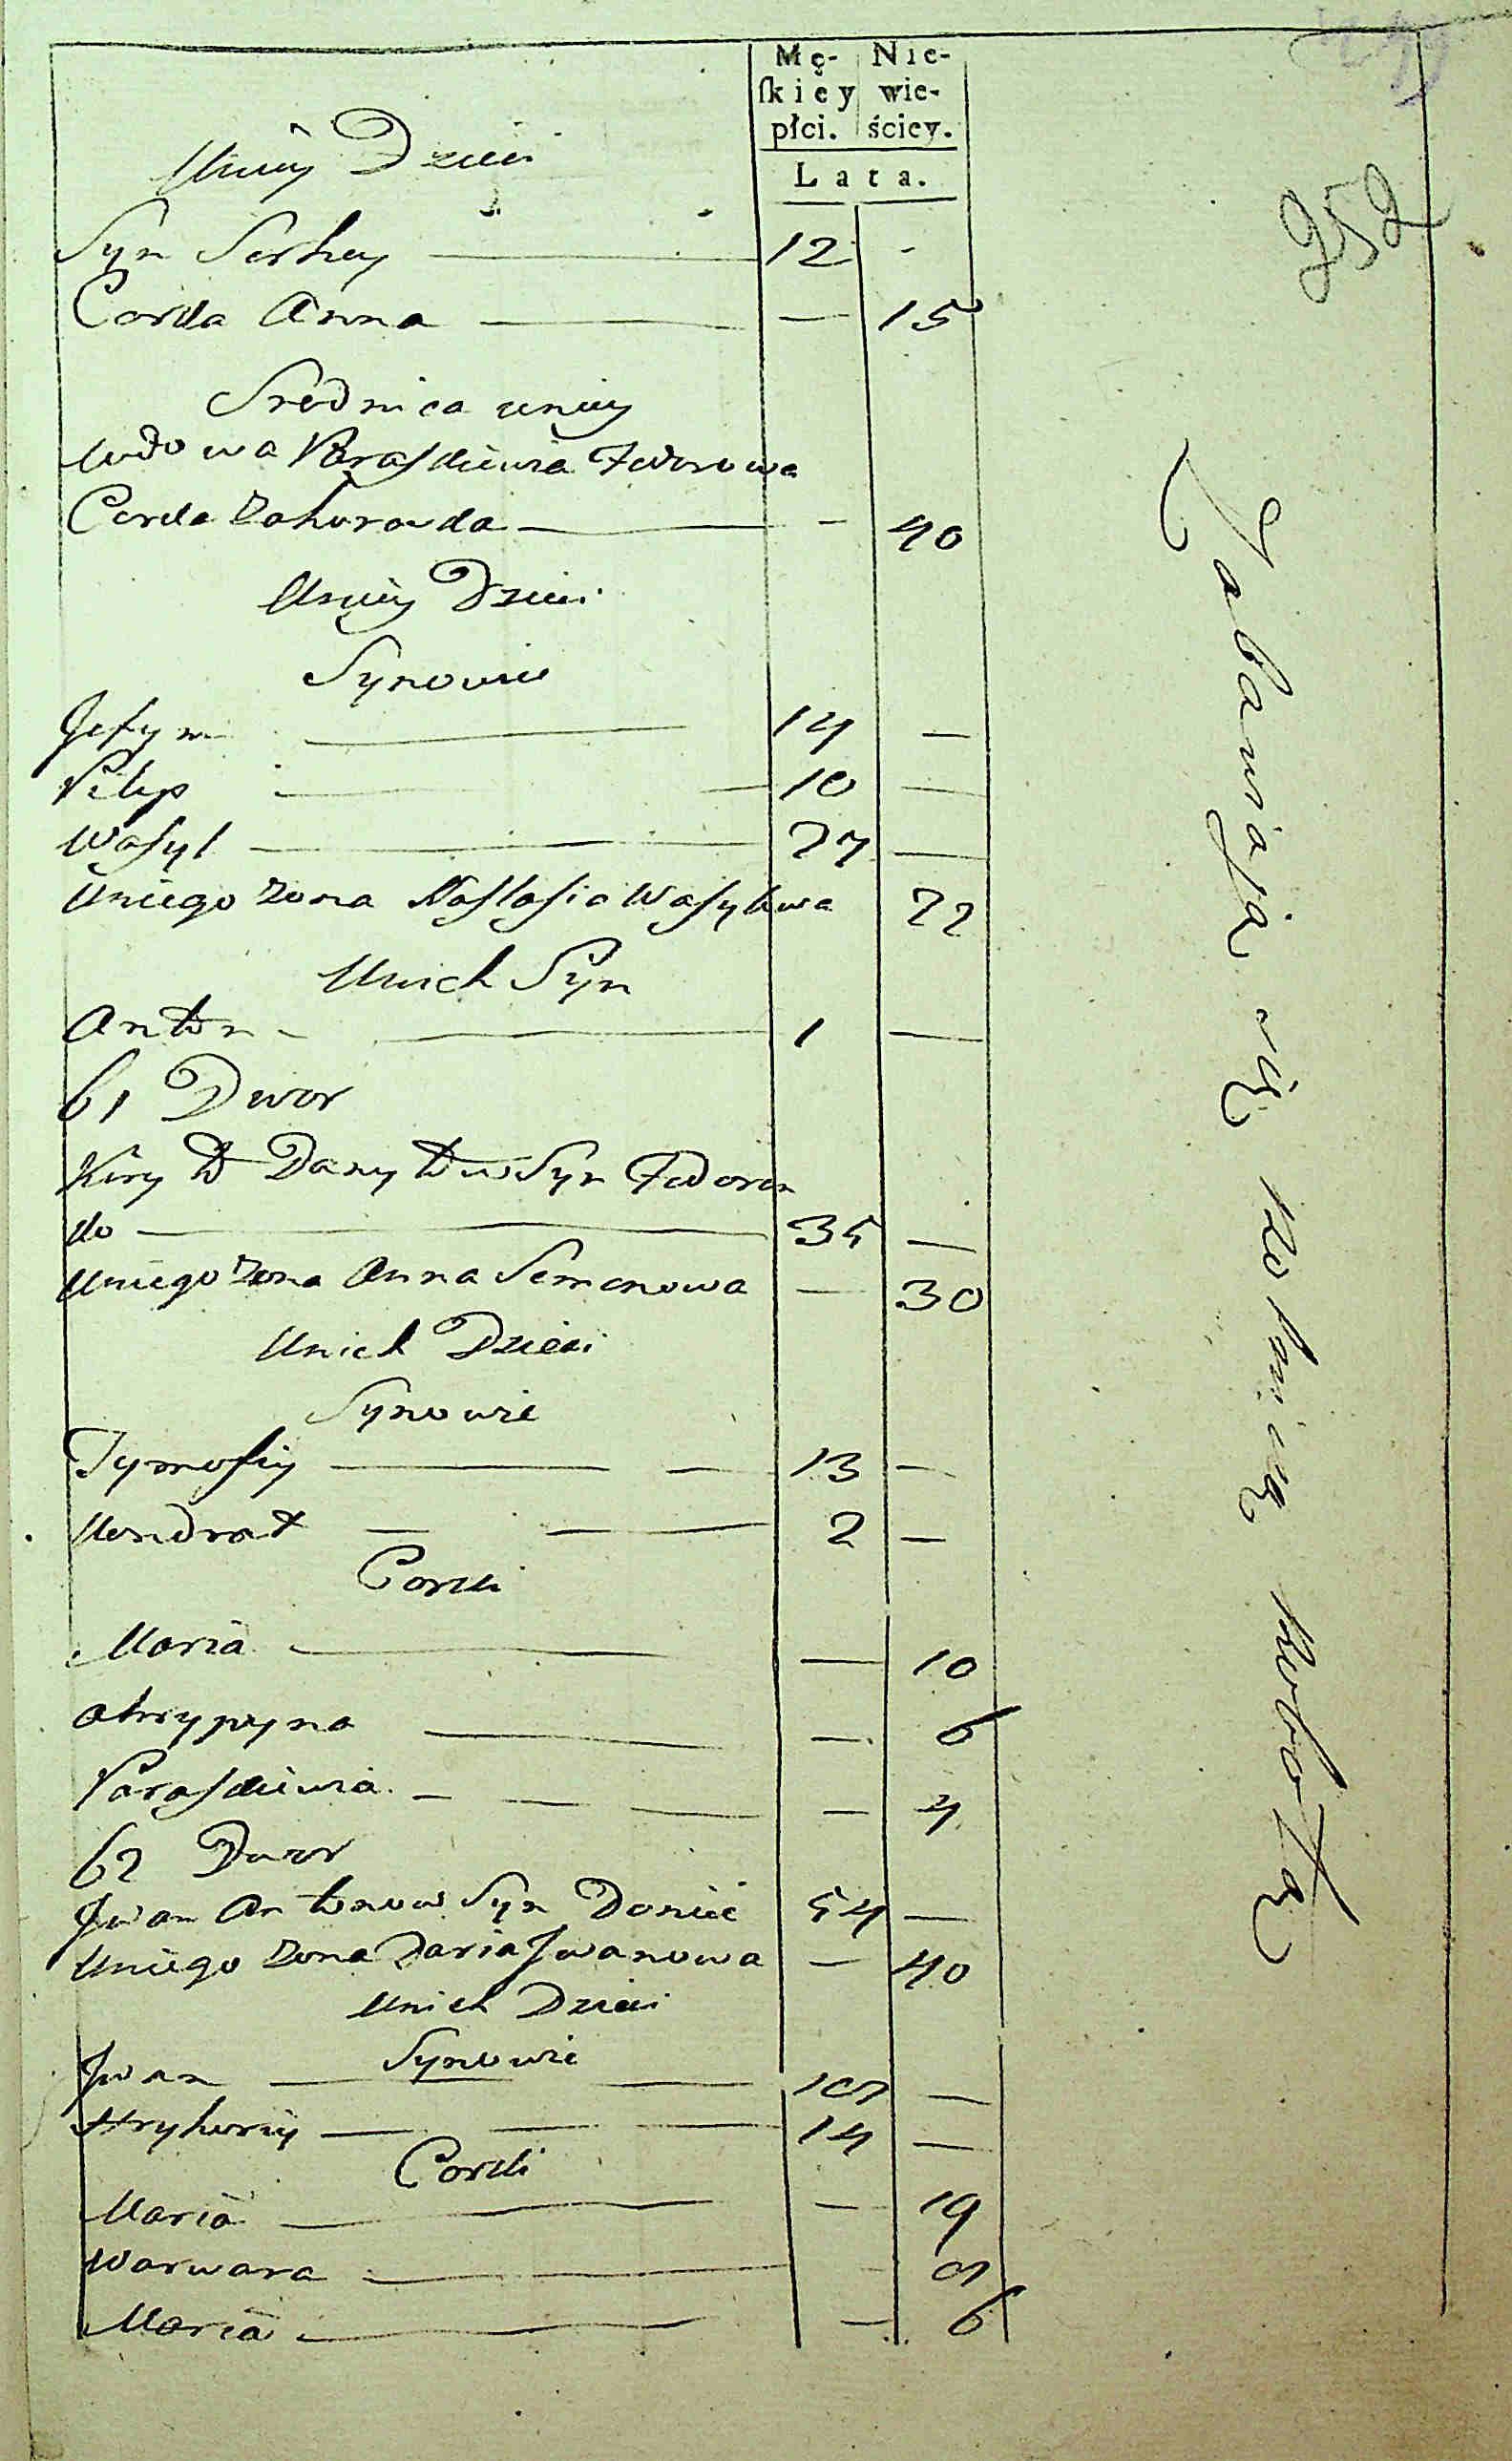 Mę- Nie-
ſkiey wie-
płci. ściey.
Lata.
252
Uniey Dzieci
Syn Serhey — 12 -
Corka Anna — — 15
Srednica uniey
wdowa Paraſkiewia Fedorowa
Corka Zahorowka — — 40
Uniey Dzieci
Synowie
Jefym — 14 —
Pilip — 10 —
Waſyl — 27 —
Uniego zona Naſtaſia Waſylowa 22
Unich Syn
Anton — 1 —
61 Dwor
Kiryło Danyłow Syn Fedoren
ko — 35 —
Uniego zona Anna Semenowa — 30
Unich Dzieci
Synowie
Tymofiy — 13 —
Kondrat — 2 —
Corki
Maria — — 10
Ahrypyna — — 6
Paraſkiewia — — 4
62 Dwor
Jwan Antonow Syn Doniec 54 —
Uniego zona Daria Jwanowa — 40
Unich Dzieci
Synowie
Jwan —
Hryhoriy — 14 —
Corki
Maria — — 19
Warwara — —
Maria — — 6
Zabawiaią się rolniczą robotą